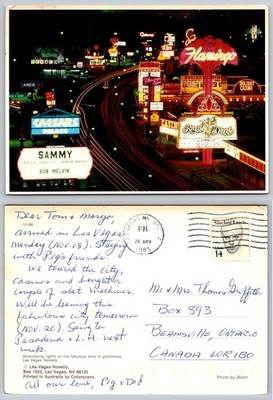 Flamingo
ARCO
CAESARS
PALACE
SAMMY
BOB MELVIN
HOLIDAY
CASINO
Dear Tom & Margo,
LV-99
arrived in Las Vegas
Monday (Nov. 18). Staying
with Peg's friends.
We toured the city,
casinos and bought a
couple of slot machines.
Will be leaving this
fabulous city tomorrow
(Nov. 20). Going to
Pasadena + L.A. next
week.
Shimmering lights on the fabulous strip in glamorous
Las Vegas, Nevada.
© Las Vegas Novelty,
Box 1522, Las Vegas, NV 89125
Printed in Australia by Colorscans.
All our love, Peg + Ded
PM
20 NOV
1985
14
Mr. & Mrs. Thomas Griffith
Box 393
Beamsville, Ontario
Canada L0R1B0
Photo by